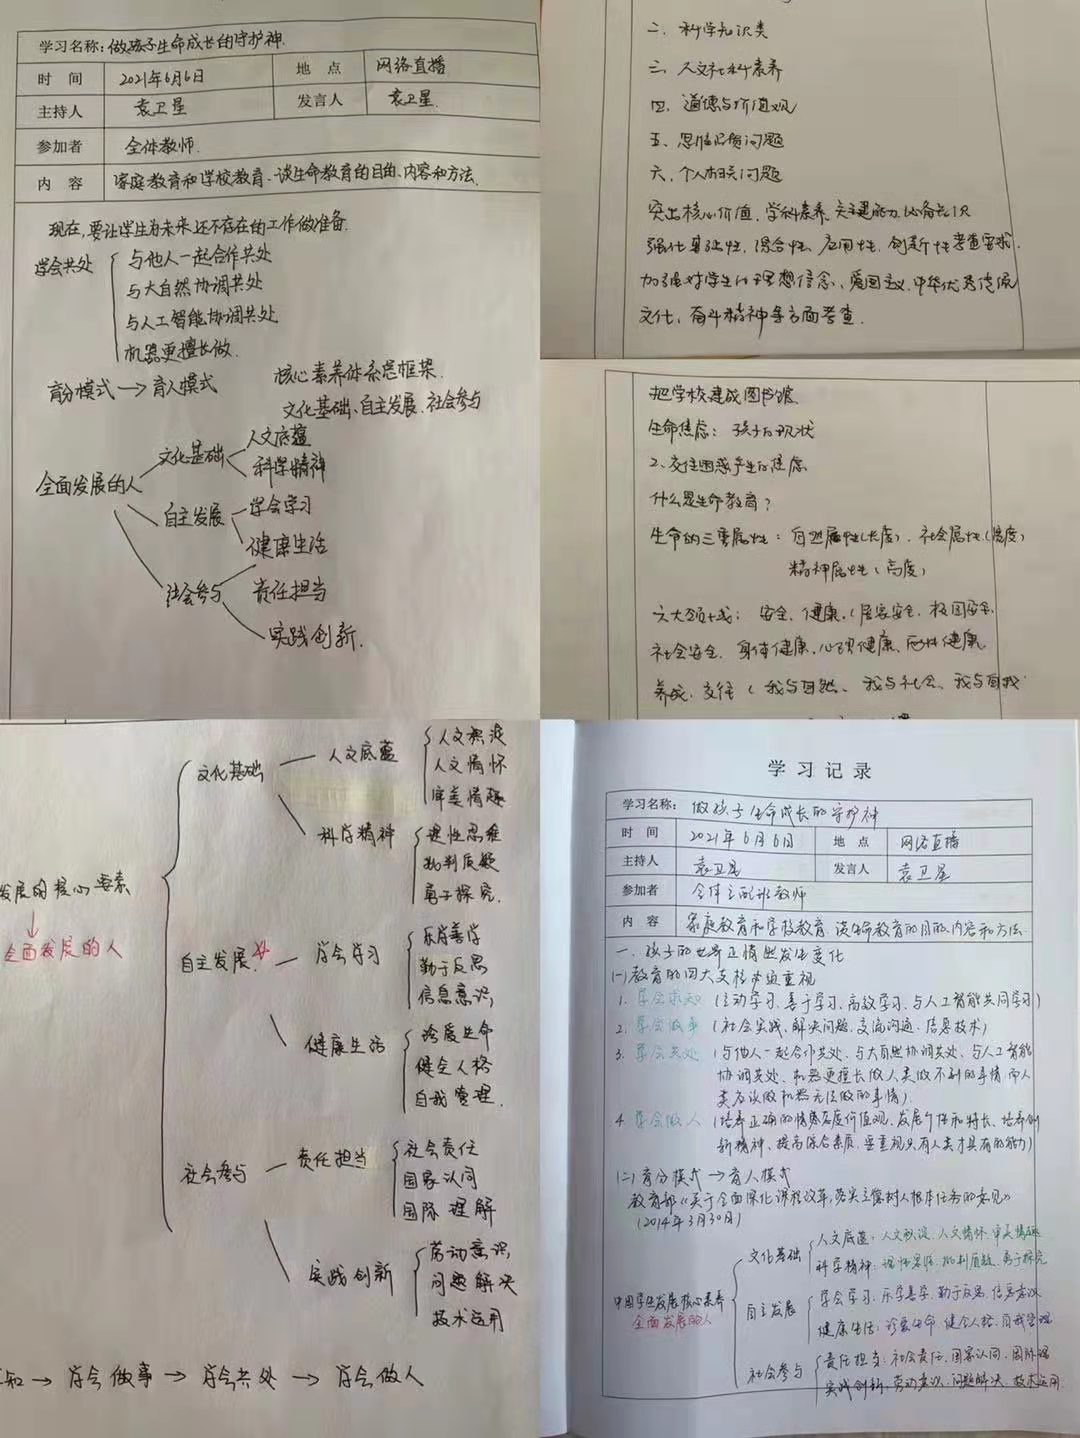 学习名称:做孩子生命成长的守护神.
时 间 2021年6月6日 地 点 网络直播
主持人 袁卫星 发言人 袁卫星.
参加者 全体教师.
内 容 家庭教育和学校教育、谈生命教育的目的、内容和方法.
现在,要让学生为未来还不存在的工作做准备.
学会共处
与他人一起合作共处
与大自然协调共处
与人工智能协调共处
机器更擅长做.
育分模式→育人模式
核心素养体系总框架.
文化基础、自主发展、社会参与
全面发展的人
文化基础
人文底蕴
科学精神
自主发展
学会学习
健康生活
社会参与
责任担当
实践创新.
二、科学知识类
三、人文社科素养
四、道德与价值观
五、思维品质问题
六、个人相关问题
突出核心价值、学科素养、关键能力、必备知识
强化基础性、综合性、应用性、创新性考查要求.
加强对学生的理想信念、爱国主义、中华优秀传统
文化、奋斗精神等方面考查.
把学校建成图书馆.
生命焦虑:孩子的现状
2、交往困惑产生的焦虑
什么是生命教育?
生命的三重属性:自然属性(长度)、社会属性(宽度)
精神属性(高度)
六大领域:安全、健康、(居家安全、校园安全、
社会安全、身体健康、心理健康、两性健康
养成、交往(我与自然、我与社会、我与自我
发展的核心要素
全面发展的人
文化基础
人文底蕴
人文积淀
人文情怀
审美情趣
科学精神
理性思维
批判质疑
勇于探究.
自主发展.
学会学习
乐学善学
勤于反思
信息意识
健康生活
珍爱生命
健全人格
自我管理.
社会参与
责任担当
社会责任
国家认同
国际理解
实践创新
劳动意识
问题解决
技术运用
知→学会做事→学会共处→学会做人
学习记录
学习名称: 做孩子生命成长的守护神
时 间 2021年6月6日 地 点 网络直播
主持人 袁卫星 发言人 袁卫星
参加者 全体教师
内 容 家庭教育和学校教育、谈生命教育的目的、内容和方法.
一、孩子的世界正悄然发生变化
(一)教育的四大支柱必须重视
1. 学会求知(主动学习、善于学习、高效学习、与人工智能共同学习)
2. 学会做事(社会实践、解决问题、交流沟通、信息技术)
3. 学会共处(与他人一起合作共处、与大自然协调共处、与人工智能
协调共处、机器更擅长做人类做不到的事情,而人
类应该做机器无法做的事情)
4. 学会做人(培养正确的情感态度价值观、发展个性和特长、培养创
新精神、提高综合素质、要重视只有人类才具有的能力)
(二)育分模式→育人模式
教育部《关于全面深化课程改革,落实立德树人根本任务的意见》
(2014年3月30日)
中国学生发展核心素养
全面发展的人
文化基础
人文底蕴:人文积淀、人文情怀、审美情趣
科学精神:理性思维、批判质疑、勇于探究
自主发展
学会学习:乐学善学、勤于反思、信息意识
健康生活:珍爱生命、健全人格、自我管理
社会参与
责任担当:社会责任、国家认同、国际理解
实践创新:劳动意识、问题解决、技术运用.